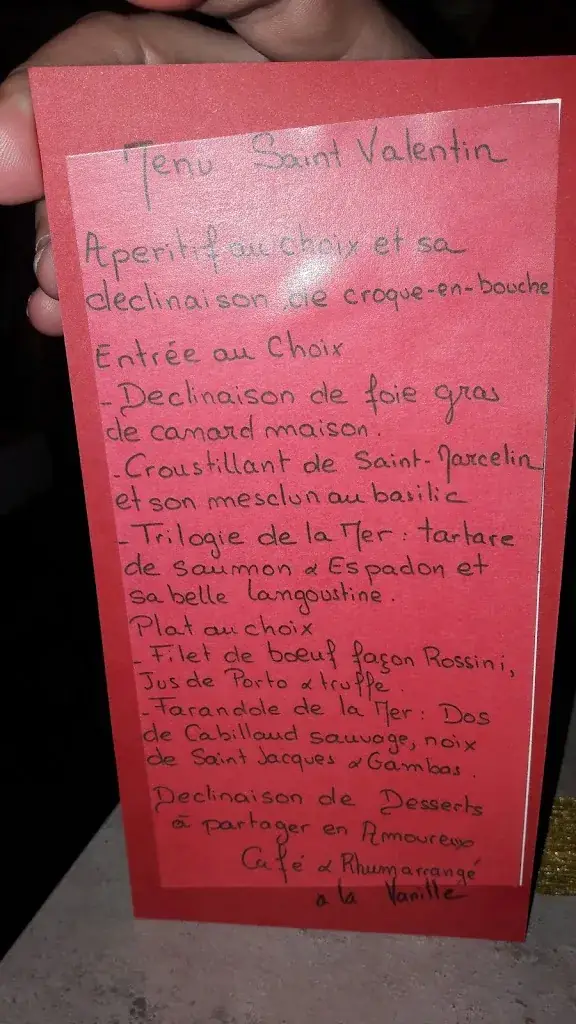 Menu Saint Valentin
Aperitif au choix et sa
declinaison de croque-en-bouche
Entrée au Choix
- Declinaison de foie gras
de canard maison.
- Croustillant de Saint-Marcelin
et son mesclun au basilic
- Trilogie de la Mer : tartare
de saumon & Espadon et
sa belle langoustine.
Plat au choix
- Filet de bœuf façon Rossini,
Jus de Porto & truffe.
- Farandole de la Mer : Dos
de Cabillaud sauvage, noix
de Saint Jacques & Gambas.
Declinaison de Desserts
à partager en Amoureux
Café & Rhum arrangé
a la Vanille